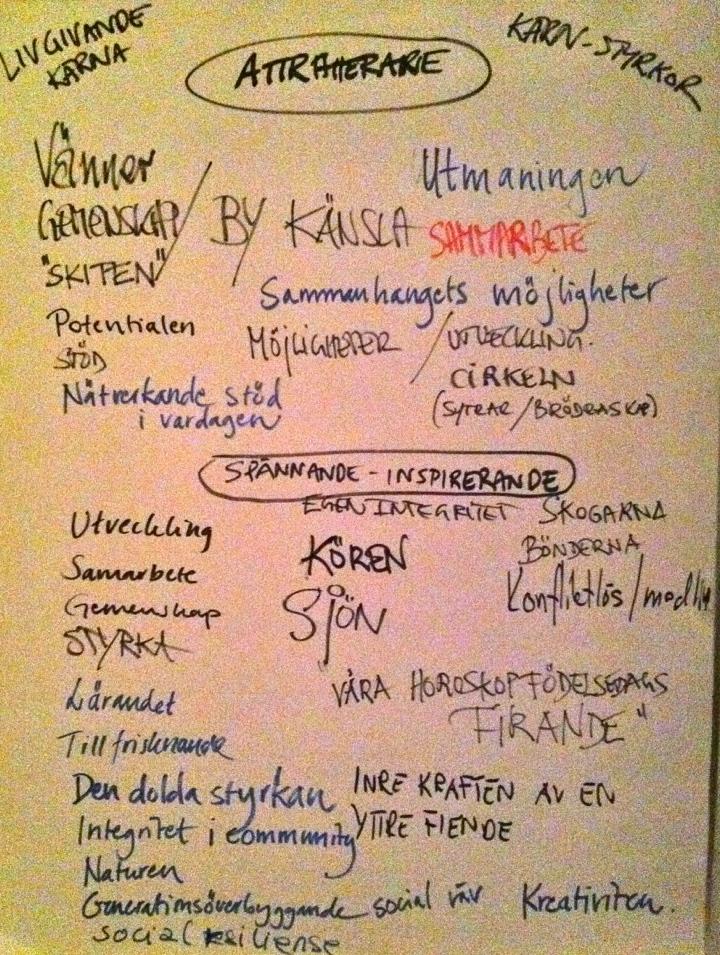 LIVGIVANDE
KÄRNA
KÄRN-STYRKOR
ATTRAHERARE
Vänner
Utmaningen
GEMENSKAP / BY KÄNSLA
SAMMARBETE
"SKITEN"
Sammanhangets möjligheter
Potentialen
MÖJLIGHETER / UTVECKLING.
STÖD
CIRKELN
Nätverkande stöd
i vardagen
(SYTRAR/BRÖDRASKAP)
SPÄNNANDE - INSPIRERANDE
EGEN INTEGRITET
SKOGARNA
Utveckling
KÖREN
BÖNDERNA
Samarbete
Konfliktlös/medling
Gemenskap
SJÖN
STYRKA
"VÅRA HOROSKOPFÖDELSEDAGS
FIRANDE"
Lärandet
Tillfrisknande
Den dolda styrkan
INRE KRAFTEN AV EN
YTTRE FIENDE
Integritet i community
Naturen
Generationsöverbyggande social väv
Kreativiteten.
social resiliense